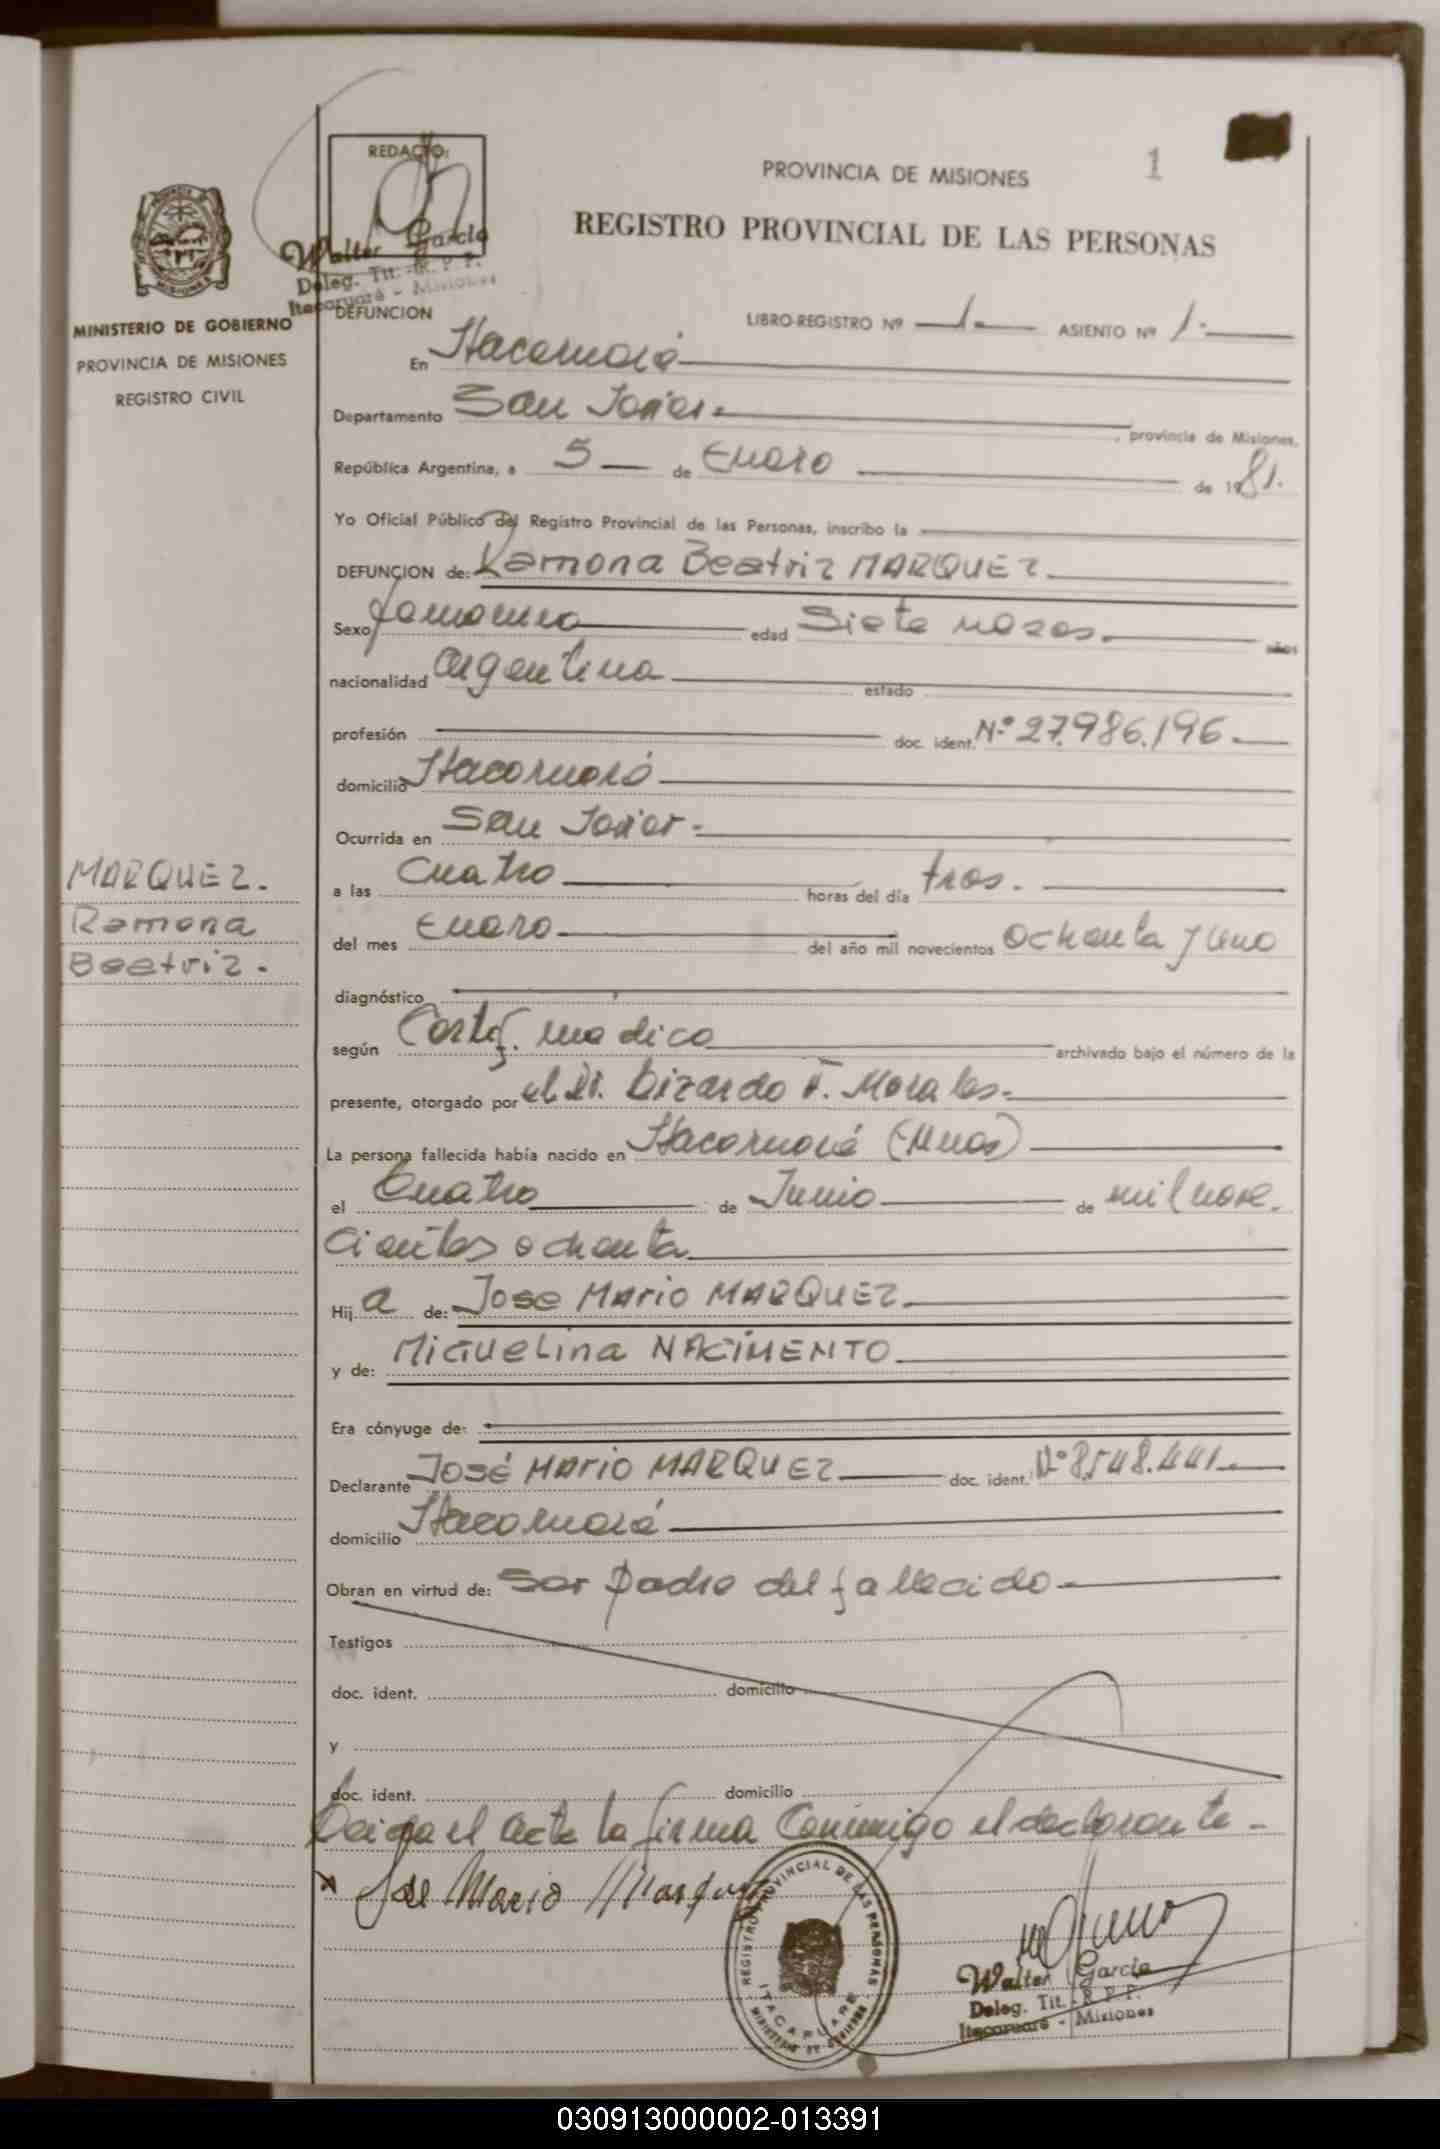 REDACTO:
PROVINCIA DE MISIONES
1
REGISTRO PROVINCIAL DE LAS PERSONAS
Walter Garcia
Deleg. Tit. R. P. P.
Itacaruaré - Misiones
MINISTERIO DE GOBIERNO
PROVINCIA DE MISIONES
REGISTRO CIVIL
DEFUNCION
LIBRO-REGISTRO Nº 1 ASIENTO Nº 1.
En Itacaruaré
Departamento San Javier. , provincia de Misiones,
República Argentina, a 5 de Enero de 1981.
Yo Oficial Público del Registro Provincial de las Personas, inscribo la
DEFUNCION de: Ramona Beatriz MARQUEZ.
Sexo femenino edad Siete meses. años
nacionalidad Argentina estado
profesión doc. ident. Nº 27.986.196.
domicilio Itacaruaré
Ocurrida en San Javier.
MARQUEZ.
Ramona
Beatriz.
a las Cuatro horas del día tres.
del mes Enero del año mil novecientos ochenta y uno
diagnóstico
según Certif. medico archivado bajo el número de la
presente, otorgado por el Dr. Lizardo F. Morales.
La persona fallecida había nacido en Itacaruaré (Mnes)
el Cuatro de Junio de mil nove.
cientos ochenta
Hij a de: Jose Mario MARQUEZ.
y de: Miguelina NACIMENTO
Era cónyuge de:
Declarante José Mario MARQUEZ doc. ident. Nº 8.548.441.
domicilio Itacaruaré
Obran en virtud de: Ser padre del fallecido
Testigos
doc. ident. domicilio
y
doc. ident. domicilio
Leida el Acta la firma Conmigo el declarante.
x José Mario Marquez
REGISTRO PROVINCIAL DE LAS PERSONAS
ITACARUARE
MINISTERIO DE GOBIERNO
Walter Garcia
Deleg. Tit. R. P. P.
Itacaruaré - Misiones
030913000002-013391